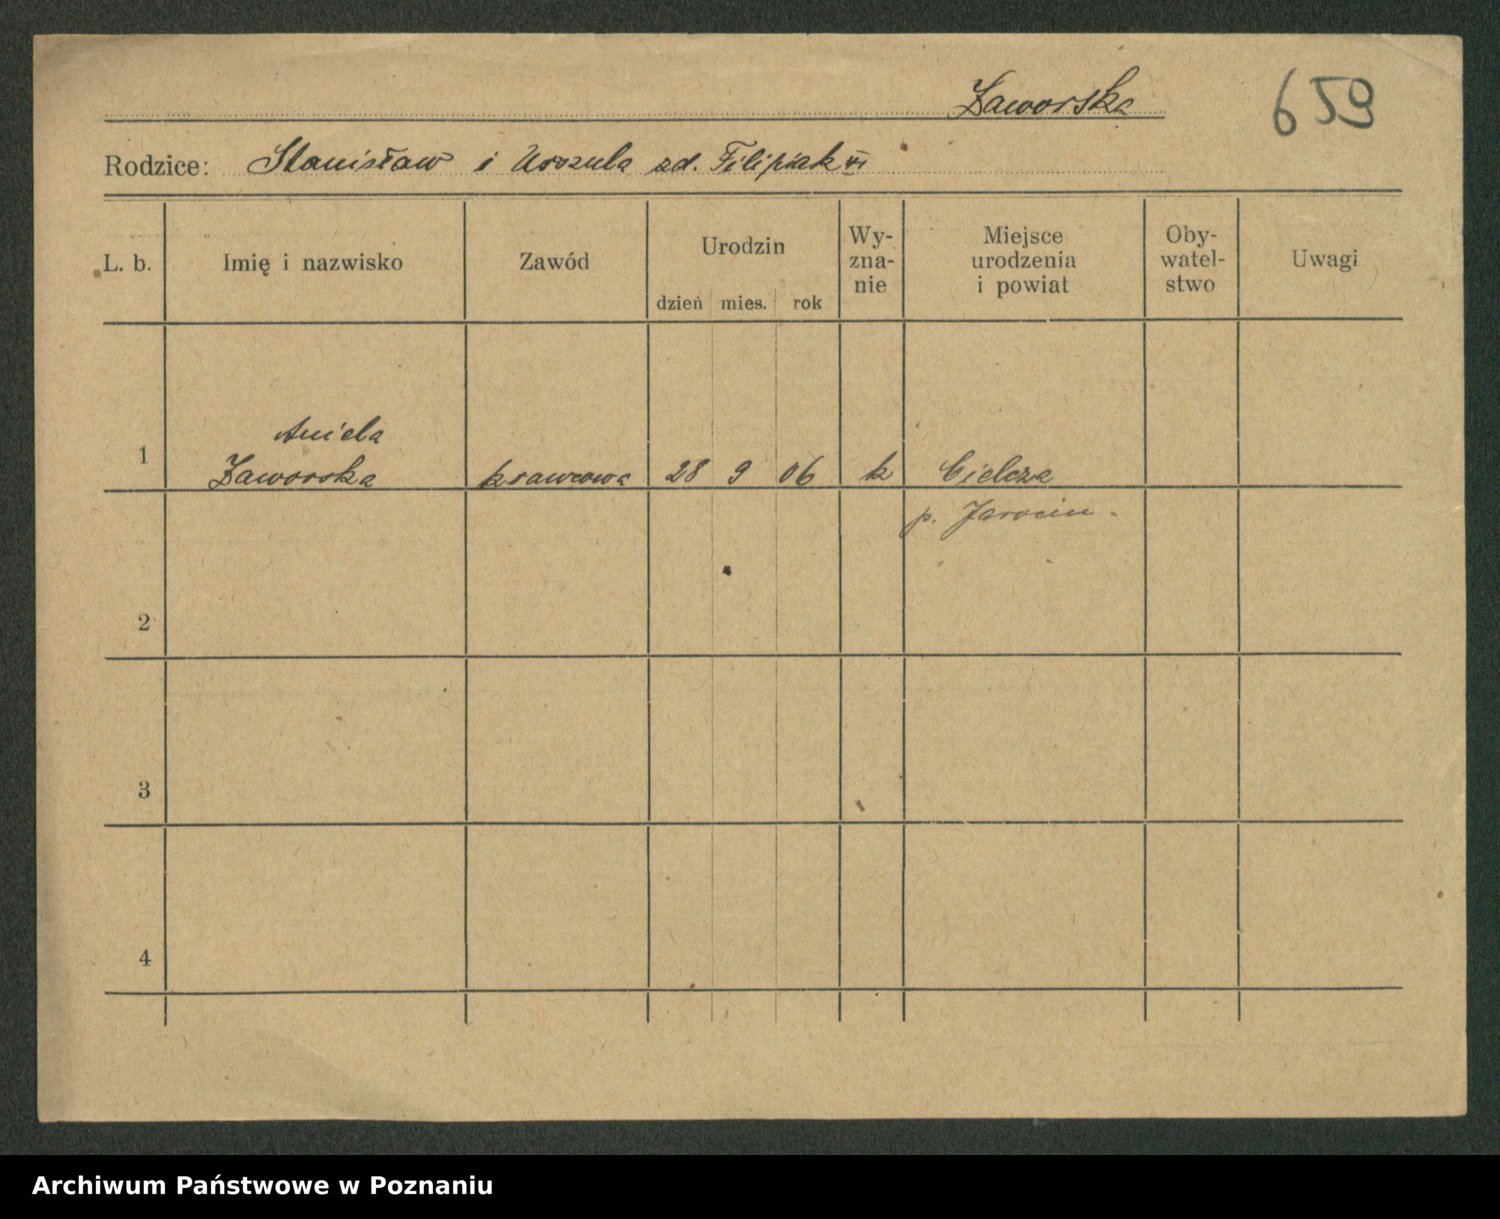 Zaworska
659
Rodzice: Stanisław i Urszula zd. Filipiak
L. b. Imię i nazwisko Zawód Urodzin dzień mies. rok Wy-zna-nie Miejsce urodzenia i powiat Oby-watel-stwo Uwagi
Aniela
1 Zaworska krawcowa 28 9 06 k Cielcza
p. Jarocin.
2
3
4
Archiwum Państwowe w Poznaniu